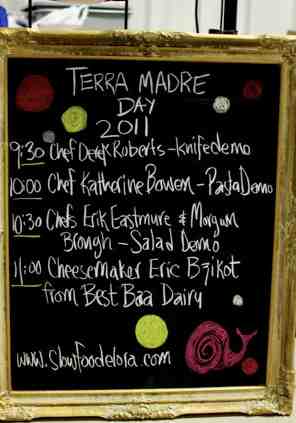 TERRA MADRE
DAY
2011
9:30 Chef Derek Roberts - knife demo
10:00 Chef Katharine Bowen - Pasta Demo
10:30 Chefs Erik Eastmure & Morgan
Brongh - Salad Demo
11:00 Cheesemaker Eric Bzikot
from Best Baa Dairy
www.slowfoodelora.com